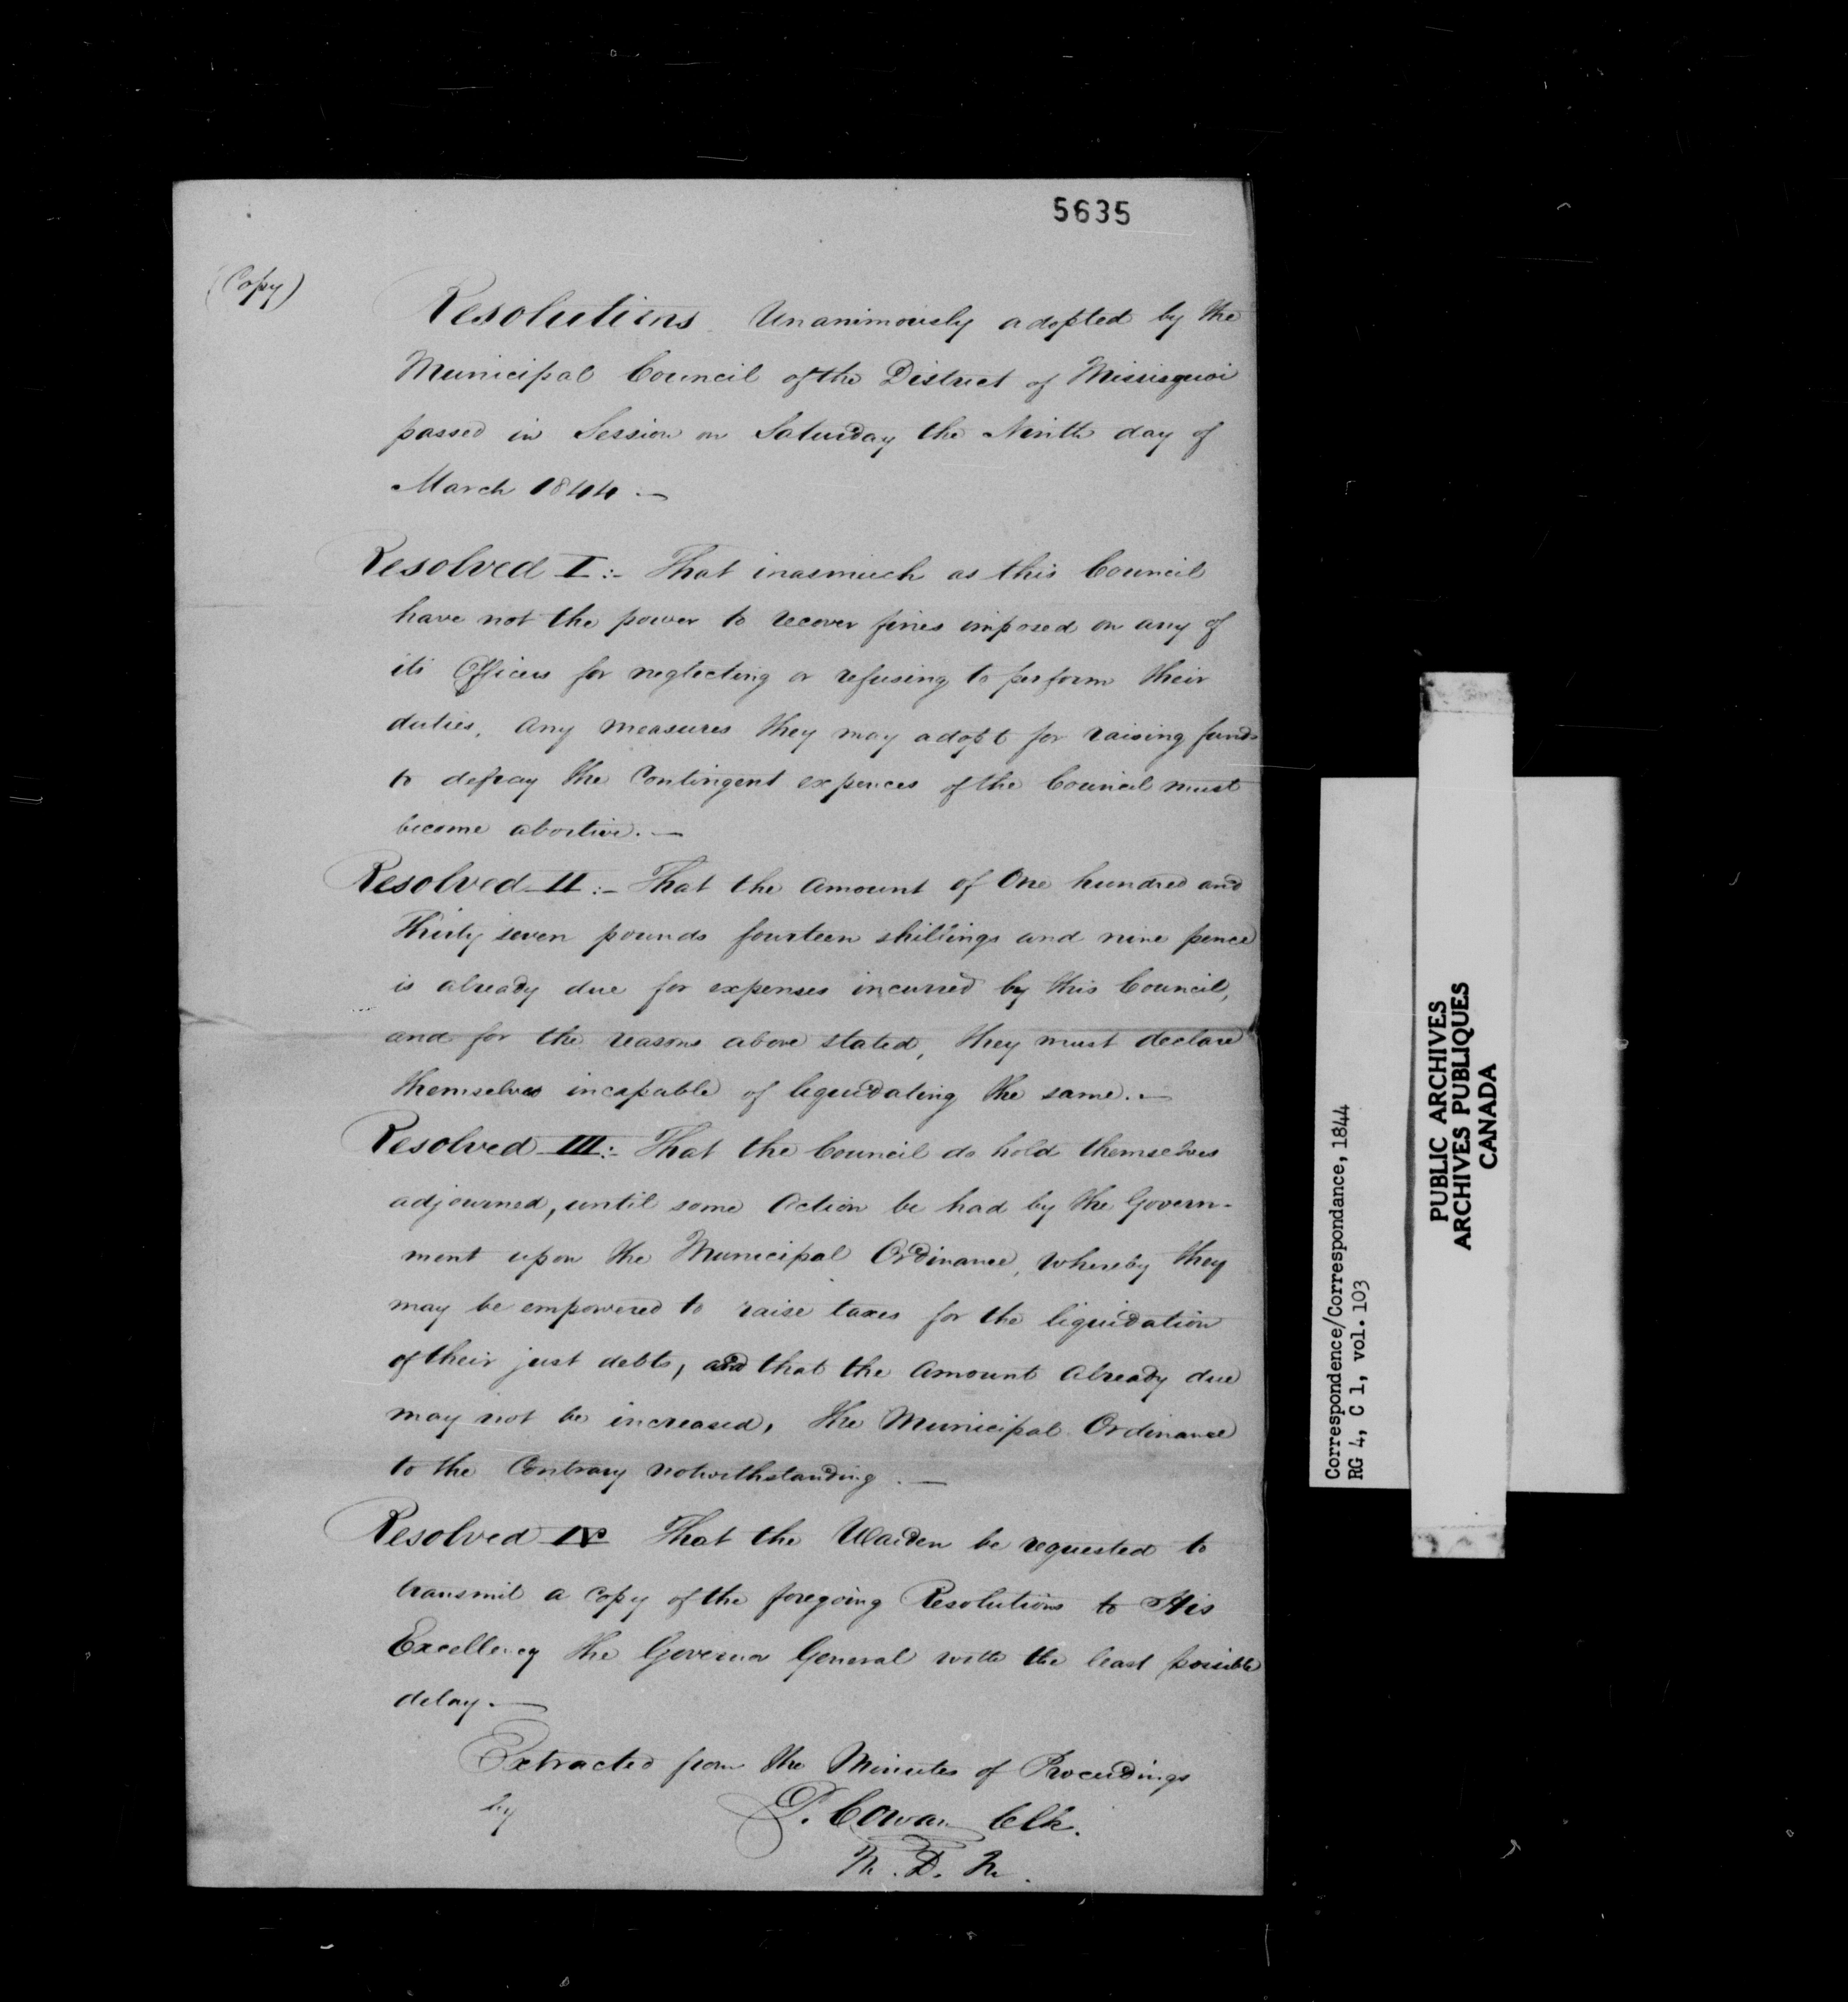 5635
(Copy)
Resolutions Unanimously adopted by the
Municipal Council of the District of Missisquoi
passed in Session on Saturday the Ninth day of
March 1844. —
Resolved I:- That inasmuch as this Council
have not the power to recover fines imposed on any of
its Officers for neglecting or refusing to perform their
duties, any measures they may adopt for raising funds
to defray the Contingent expences of the Council must
become abortive. —
Resolved II:- That the amount of One hundred and
Thirty seven pounds fourteen shillings and nine pence
is already due for expenses incurred by this Council,
and for the reasons above stated, they must declare
themselves incapable of liquidating the same. —
Resolved III:- That the Council do hold themselves
adjourned, until some Action be had by the Govern-
ment upon the Municipal Ordinance, whereby they
may be empowered to raise taxes for the liquidation
of their just debts, and that the amount already due
may not be increased, the Municipal Ordinance
to the Contrary notwithstanding. —
Resolved IV That the Warden be requested to
transmit a Copy of the foregoing Resolutions to His
Excellency the Governor General with the least possible
delay. —
Extracted from the Minutes of Proceedings
by P. Cowan Clk.
M. D. M.
Correspondence/Correspondance, 1844
RG 4, C 1, vol. 103
PUBLIC ARCHIVES
ARCHIVES PUBLIQUES
CANADA